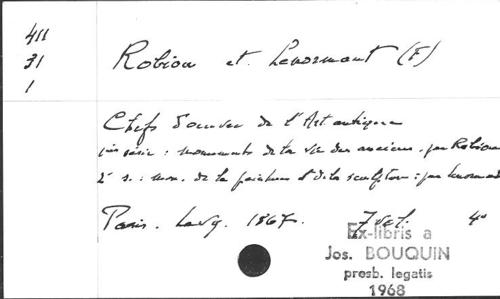 411
31
1
Robiou et Lenormant (F)
Chefs d'oeuvre de l'Art antique
1ère série : monuments de la vie des anciens, par Robiou
2e s. : mon. de la peinture et de la sculpture : par Lenormant
Paris. Levy. 1867. 7 vol. 4°
Ex-libris a
Jos. BOUQUIN
presb. legatis
1968